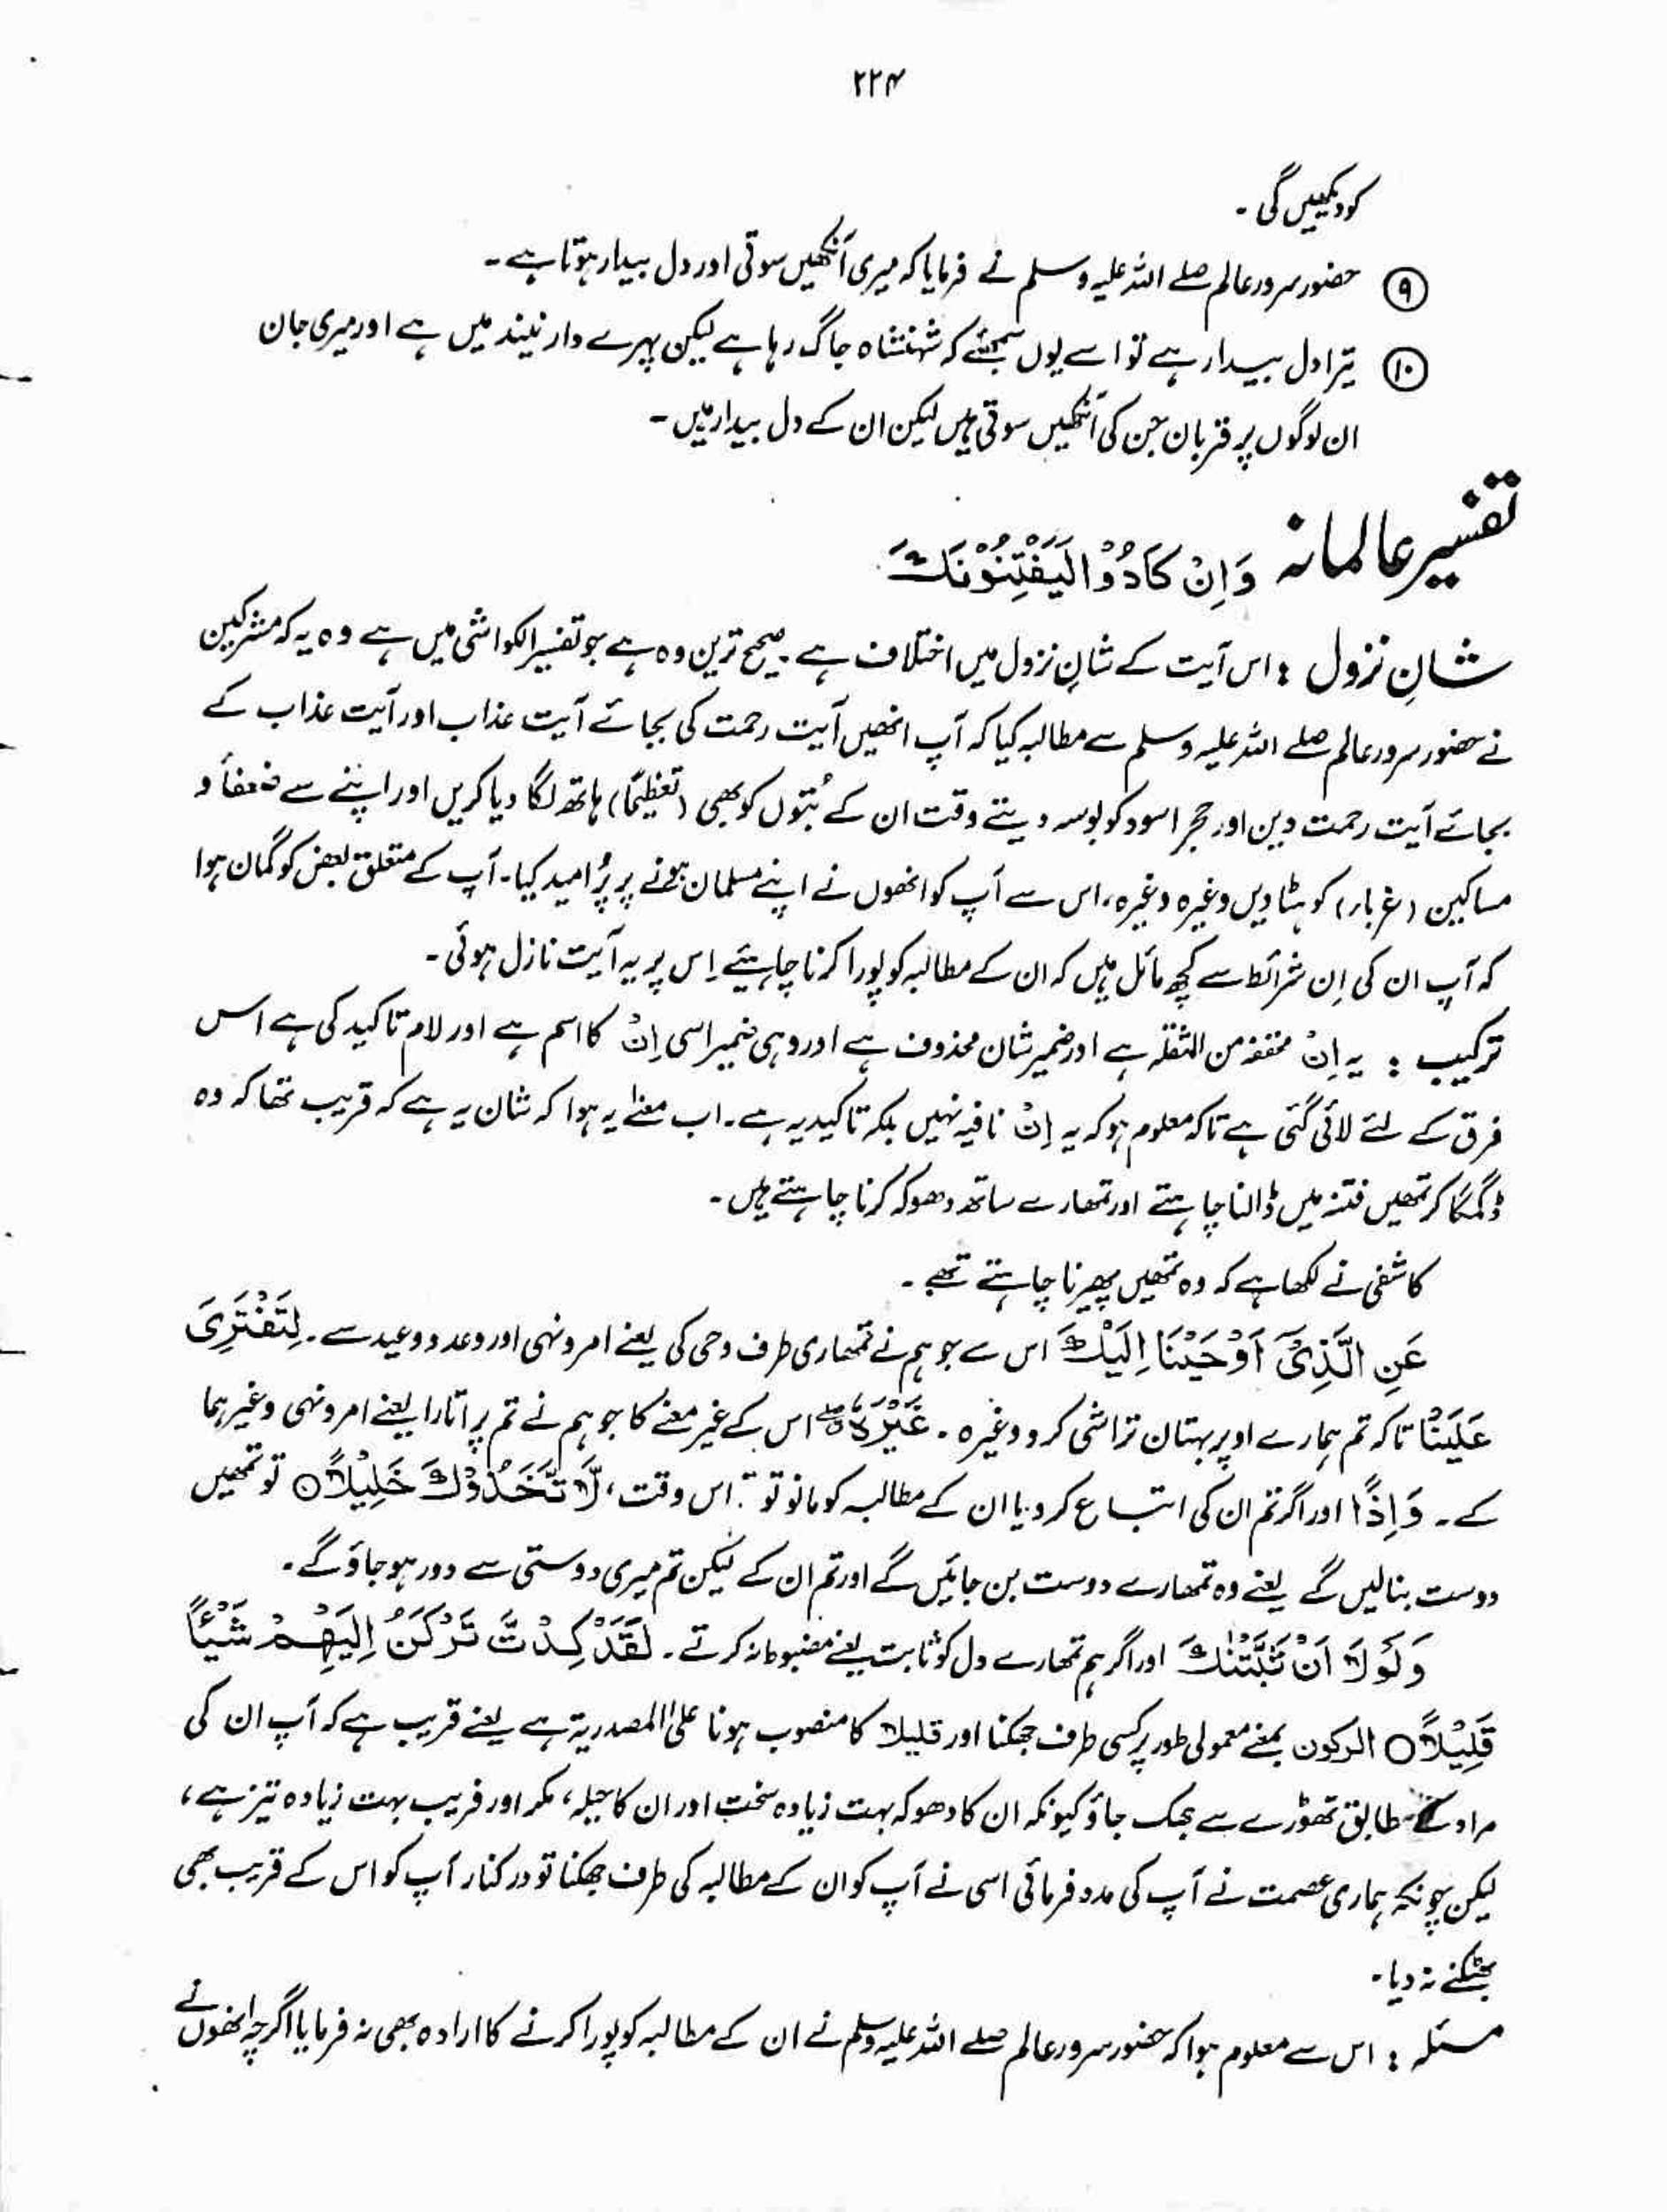 ۲۲۴
کو دیکھیں گی ۔
⑨ حضور سرور عالم صلے اللہ علیہ وسلم نے فرمایا کہ میری آنکھیں سوتی اور دل بیدار ہوتا ہے ۔
⑩ تیرا دل بیدار ہے تو اسے یوں سمجھئے کہ شہنشاہ جاگ رہا ہے لیکن پہرے دار نیند میں ہے اور میری جان
ان لوگوں پر قربان جن کی آنکھیں سوتی ہیں لیکن ان کے دل بیدار ہیں ۔
تفسیر عالمانہ وَاِنْ كَادُوْا لَيَفْتِنُوْنَكَ
شانِ نزول : اس آیت کے شانِ نزول میں اختلاف ہے ۔ صحیح ترین وہ ہے جو تفسیر الکواشی میں ہے وہ یہ کہ مشرکین
نے حضور سرور عالم صلے اللہ علیہ وسلم سے مطالبہ کیا کہ آپ انھیں آیت رحمت کی بجائے آیت عذاب اور آیت عذاب کے
بجائے آیت رحمت دیں اور حجر اسود کو بوسہ دیتے وقت ان کے بُتوں کو بھی (تعظیمًا) ہاتھ لگا دیا کریں اور اپنے سے ضعفاً و
مساکین (غربار) کو ہٹا دیں وغیرہ وغیرہ، اس سے آپ کو انھوں نے اپنے مسلمان ہونے پر پُر امید کیا ۔ آپ کے متعلق بعض کو گمان ہوا
کہ آپ ان کی اِن شرائط سے کچھ مائل ہیں کہ ان کے مطالبہ کو پورا کرنا چاہیئے اِس پر یہ آیت نازل ہوئی ۔
ترکیب : یہ اِنْ مخففہ من الثقلہ ہے اور ضمیر شان محذوف ہے اور وہی ضمیر اسی اِنْ کا اسم ہے اور لام تاکید کی ہے اس
فرق کے لئے لائی گئی ہے تاکہ معلوم ہو کہ یہ اِنْ نافیہ نہیں بلکہ تاکیدیہ ہے ۔ اب معنے یہ ہوا کہ شان یہ ہے کہ قریب تھا کہ وہ
ڈگمگا کر تمھیں فتنہ میں ڈالنا چاہتے اور تمھارے ساتھ دھوکہ کرنا چاہتے ہیں ۔
کاشفی نے لکھا ہے کہ وہ تمھیں پھیرنا چاہتے تھے ۔
عَنِ الَّذِىْٓ اَوْحَيْنَا اِلَيْكَ اس سے جو ہم نے تمھاری طرف وحی کی یعنے امر و نہی اور وعد و وعید سے ۔ لِتَفْتَرِىَ
عَلَيْنَا تاکہ تم ہمارے اوپر بہتان تراشی کرو وغیرہ ۔ غَيْرَهٗ ۖ اس کے غیر معنے کا جو ہم نے تم پر اتارا یعنے امر و نہی وغیرہما
کے ۔ وَاِذًا اور اگر تم ان کی اتباع کرو یا ان کے مطالبہ کو مانو تو : اس وقت، لَّا تَّخَذُوْكَ خَلِيْلًا ○ تو تمھیں
دوست بنا لیں گے یعنے وہ تمھارے دوست بن جائیں گے اور تم ان کے لیکن تم میری دوستی سے دور ہو جاؤ گے ۔
وَلَوْلَآ اَنْ ثَبَّتْنٰكَ اور اگر ہم تمھارے دل کو ثابت یعنے مضبوط نہ کرتے ۔ لَقَدْ كِدْتَّ تَرْكَنُ اِلَيْهِمْ شَيْئًا
قَلِيْلًا ○ الرکون بمعنے معمولی طور پر کسی طرف جھکنا اور قلیلا کا منصوب ہونا علیٰ المصدریۃ ہے یعنے قریب ہے کہ آپ ان کی
مراد کے مطابق تھوڑے سے جھک جاؤ کیونکہ ان کا دھوکہ بہت زیادہ سخت اور ان کا حیلہ، مکر اور فریب بہت زیادہ تیز ہے،
لیکن چونکہ ہماری عصمت نے آپ کی مدد فرمائی اسی نے آپ کو ان کے مطالبہ کی طرف جھکنا تو درکنار آپ کو اس کے قریب بھی
بھٹکنے نہ دیا ۔
مسئلہ : اس سے معلوم ہوا کہ حضور سرور عالم صلے اللہ علیہ وسلم نے ان کے مطالبہ کو پورا کرنے کا ارادہ بھی نہ فرمایا اگرچہ انھوں نے